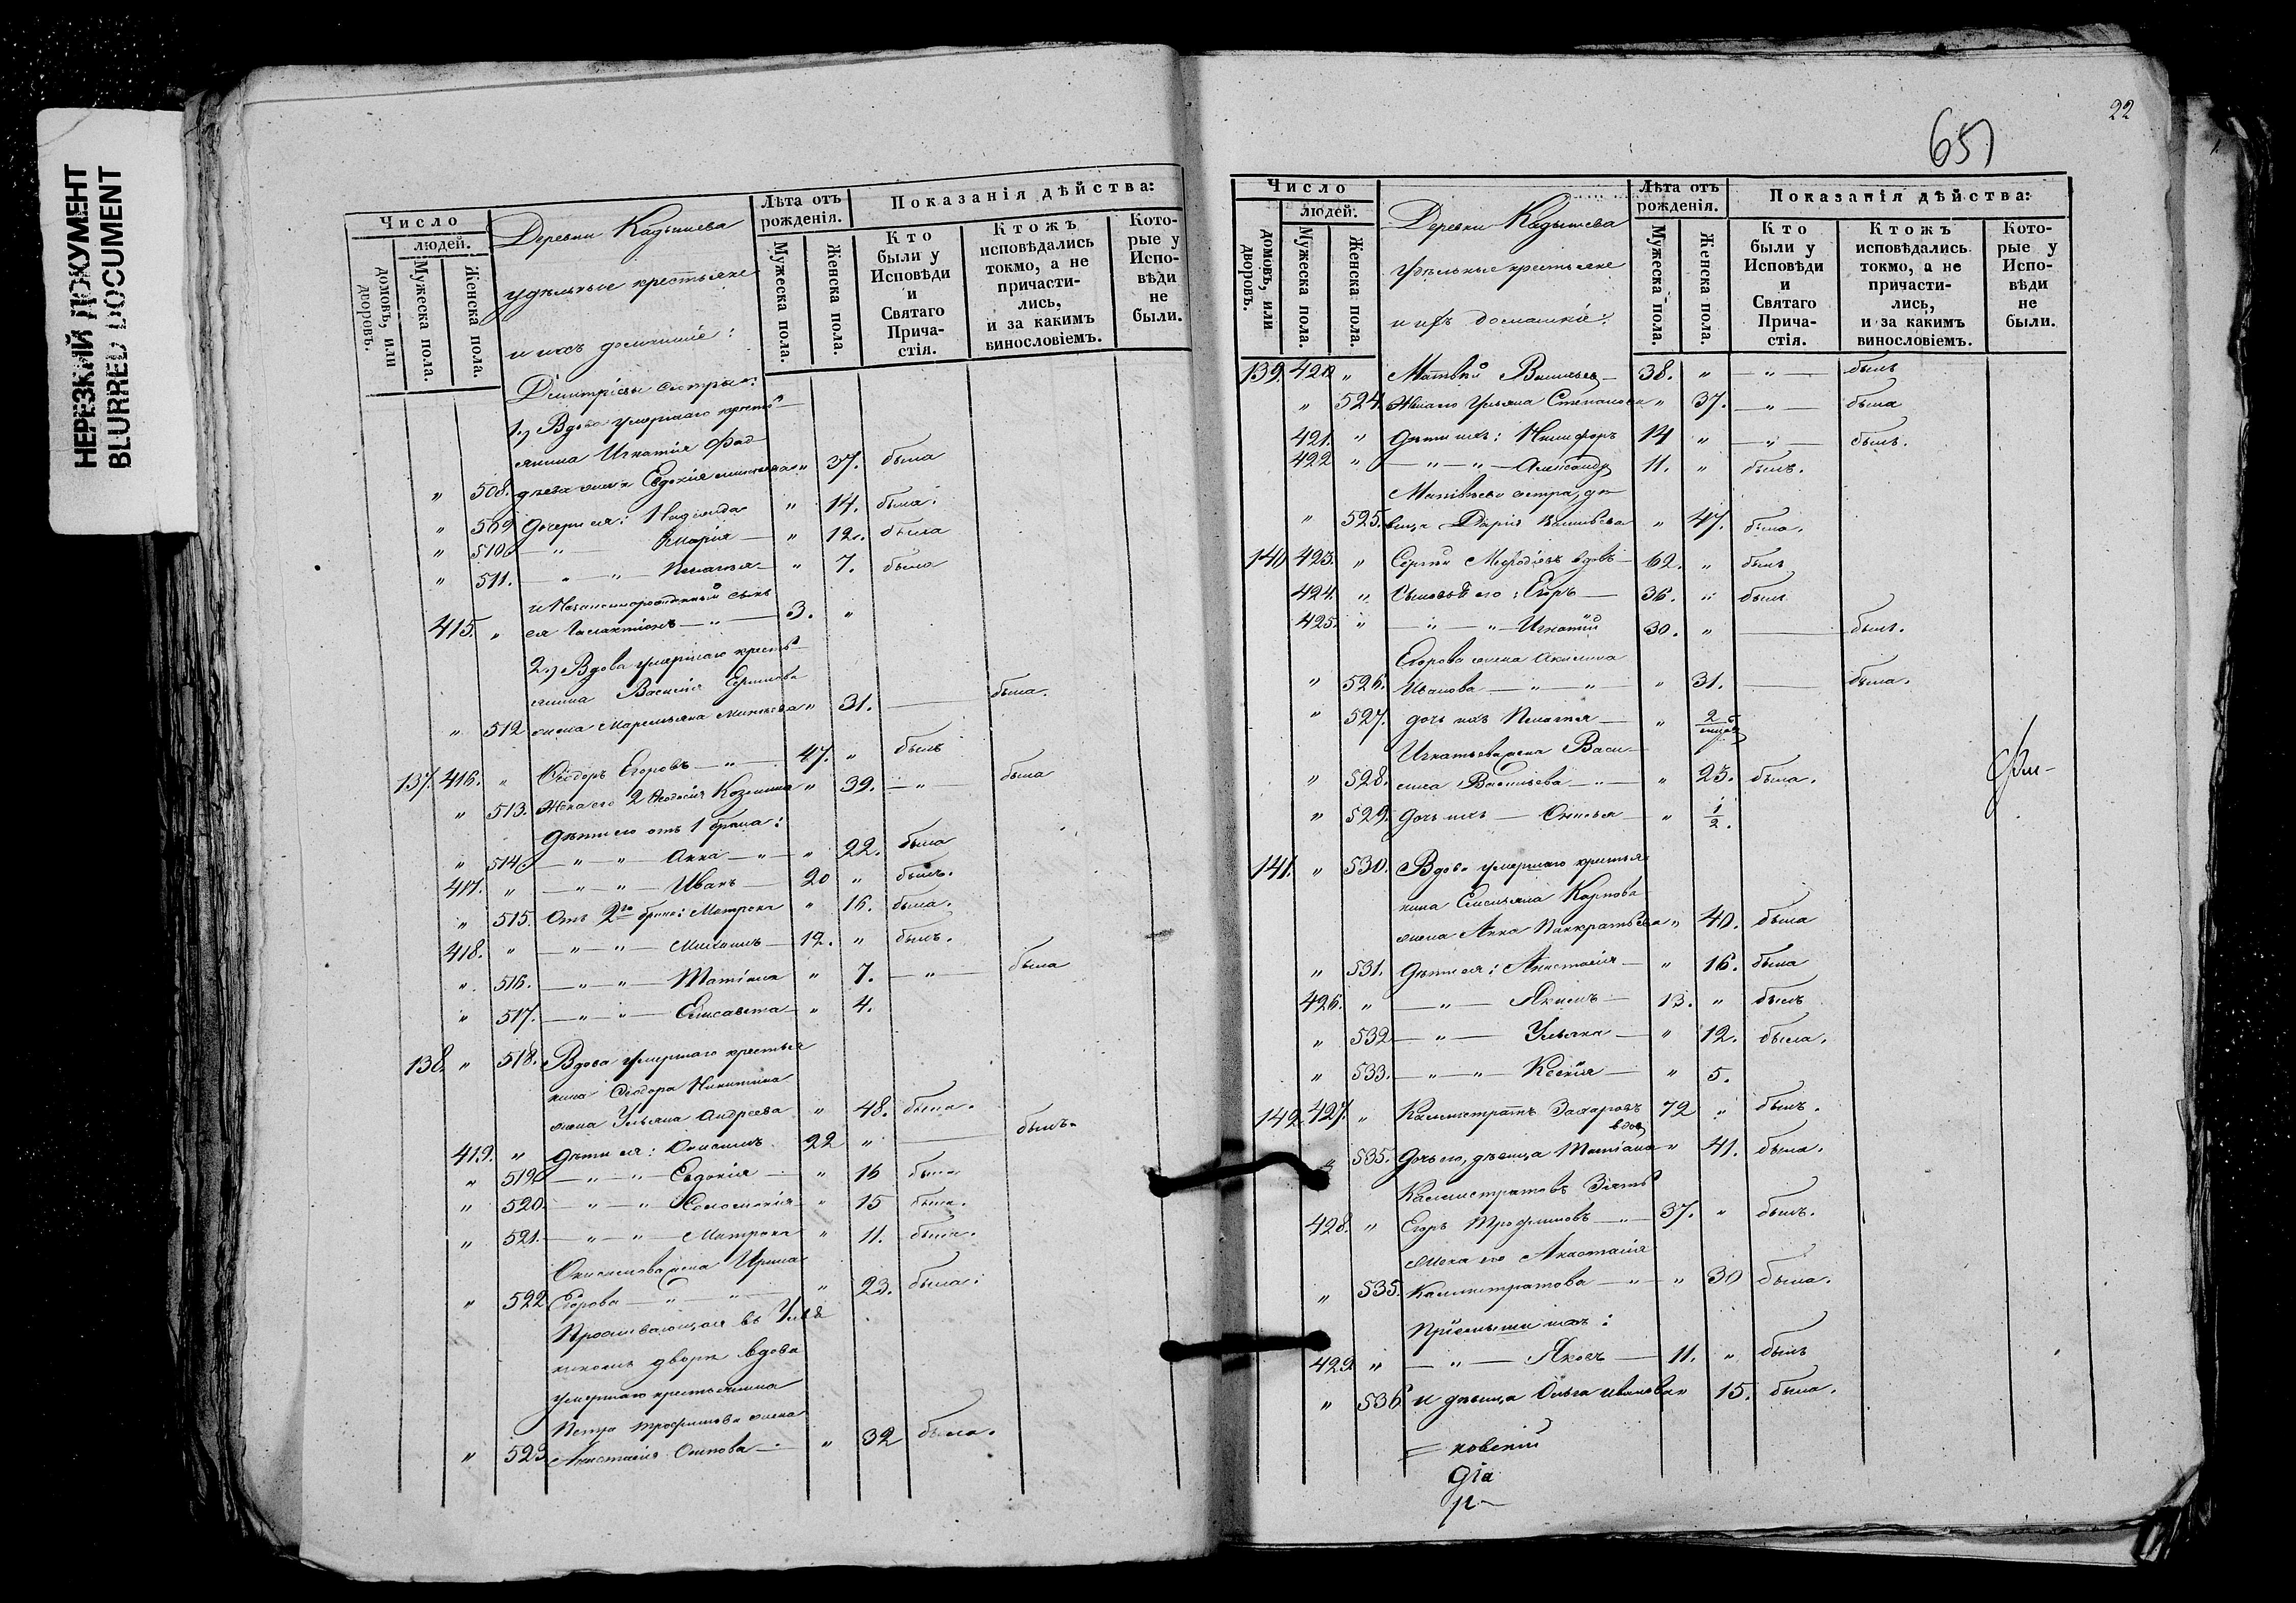 НЕРЕЗКИЙ ДОКУМЕНТ
BLURRED DOCUMENT
Число
людей.
домовъ, или дворовъ.
Мужеска пола.
Женска пола.
Деревни Кадышева
удѣльные крестьяне
и ихъ домашніе:
Лѣта отъ рожденія.
Мужеска пола.
Женска пола.
Показанія дѣйства:
Кто были у Исповѣди и Святаго Причастія.
Ктожъ исповѣдались токмо, а не причастились, и за какимъ винословіемъ.
Которые у Исповѣди не были.
Димитріевы сестры:
1.) Вдова умершаго кресть-
янина Игнатія Фад-
" 508. дѣева жена Евдокія " 37. была
" 509 Дочери ея: Надежда " 14. была.
" 510 — " — Марія — " 12. была
" 511. — " — " — Пелагія — " 7. была
и Незаконнорожденный сынъ
415. " ея Галактіонъ — " — 3. "
2.) Вдова умершаго кресть-
янина Василія
" 512 жена Маремьяна " 31. — была.
137. 416. " Ѳеодоръ Егоровъ — " — 47. " былъ
" 513. Жена его 2 Ѳеодосія Козьмина " 39. — " — была
Дѣти его отъ 1 брака:
" 514 — " — " — Анна — " — " 22. была
417. " — " — " — Иванъ — 20 " былъ.
" 515. Отъ 2го брака: Матрона " 16. была.
418. " — " — " — Михаилъ — 12. " былъ.
" 516. — " — " — Татіана " 7. — " — была
" 517. — " — " — Елисавета — " 4.
138. " 518. Вдова умершаго крестья-
нина Ѳеодора Никитина
жена Ульяна Андреева " 48. была.
419. " Дѣти ея: Онисимъ 22 " — былъ.
" 519 — " — " — Евдокія — " 16 была
" 520. — " — " — Соломонія " 15 была.
" 521. — " — " — Матрона " 11. была.
Онисимова жена Ирина
" 522 Егорова — " — " — " 23. была.
Проживающая въ
дворѣ вдова
умершаго крестьянина
Петра Трофимова жена
" 523 Анастасія Осипова — " 32 была.
651
22
Число
людей.
домовъ, или дворовъ.
Мужеска пола.
Женска пола.
Деревни Кадышева
удѣльные крестьяне
и ихъ домашніе:
Лѣта отъ рожденія.
Мужеска пола.
Женска пола.
Показанія дѣйства:
Кто были у Исповѣди и Святаго Причастія.
Ктожъ исповѣдались токмо, а не причастились, и за какимъ винословіемъ.
Которые у Исповѣди не были.
139. 420 " Матвѣй Васильевъ — 38. " — " — былъ
" 524. Жена его Ульяна Степанова " 37. — " — была
421. " Дѣти ихъ: Никифоръ 14 " — " — былъ.
422 " — " — " — Александръ 11. " былъ.
Матвѣева сестра, дѣ-
" 525. вица Дарія Васильева " 47. была.
140 423. " Сергѣй Меѳодіевъ вдовъ — 62. " былъ
424. " Сыновья его: Егоръ — 36. " былъ
425. " — " — " — Игнатій 30. " — былъ.
Егорова жена Акилина
" 526. Иванова — " — " — " 31. — была.
" 527. дочь ихъ Пелагія — " 2
Игнатьева жена Васи-
" 528. лиса Васильева — " — " 23. была.
" 529. Дочь ихъ — — " 1/2.
141. " 530. Вдова умершаго крестья-
нина Емельяна Карпова
жена Анна Панкратьева " 40. была
" 531. Дѣти ея: Анастасія — " 16. была
426. " — " — Якимъ — 13. " былъ
" 532 — " — Ульяна — " 12. была.
" 533. — " — " — Ксенія — " 5.
142. 427. " Каллистратъ Захаровъ 72 " былъ.
вдов
" 535. Дочь его, дѣвица Татіана " 41. была.
Каллистратовъ Зять
428. " Егоръ Трофимовъ — " — 37. " былъ.
Жена его Анастасія
" 535. Каллистратова — " — " 30 была.
Пріемыши ихъ:
429 " — " — Яковъ — 11. " былъ
" 536 и дѣвица Ольга Иванова " 15. была.